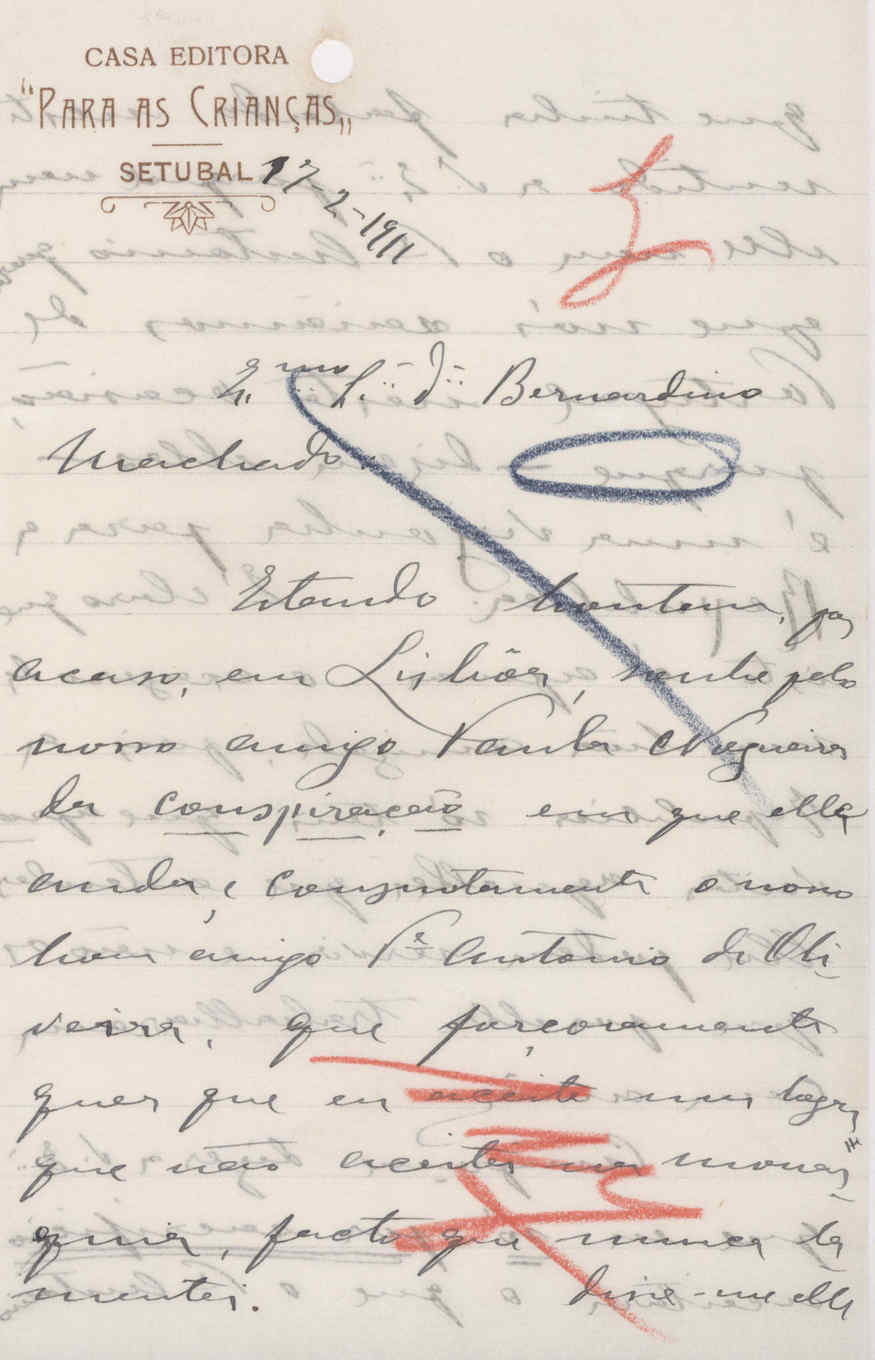 CASA EDITORA
"PARA AS CRIANÇAS"
SETUBAL 17-2-1911
Ex.mo Sr. Dr. Bernardino
Machado:
Estando hontem, por
acaso, em Lisbôa, soube pelo
nosso amigo Paula Nogueira
da conspiração em que elle
anda, e conjuntamente o nosso
bom amigo Pe Antonio de Oli-
veira, que forçosamente
quer que eu aceite um logar
que não aceitei na monar-
quia, facto que nunca la-
mentei. Disse-me elle